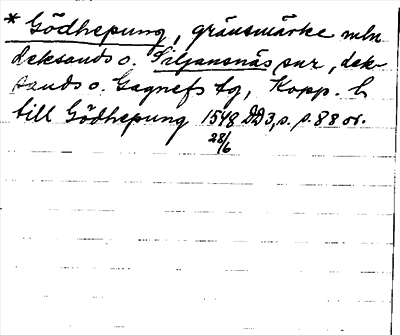 * Gödhepung, gränsmärke mln
Leksands o. Siljansnäs snr, Lek-
sands o. Gagnefs tg, Kopp. l.
till Gödhepung 1548 DD3, s. 88 or.
28/6